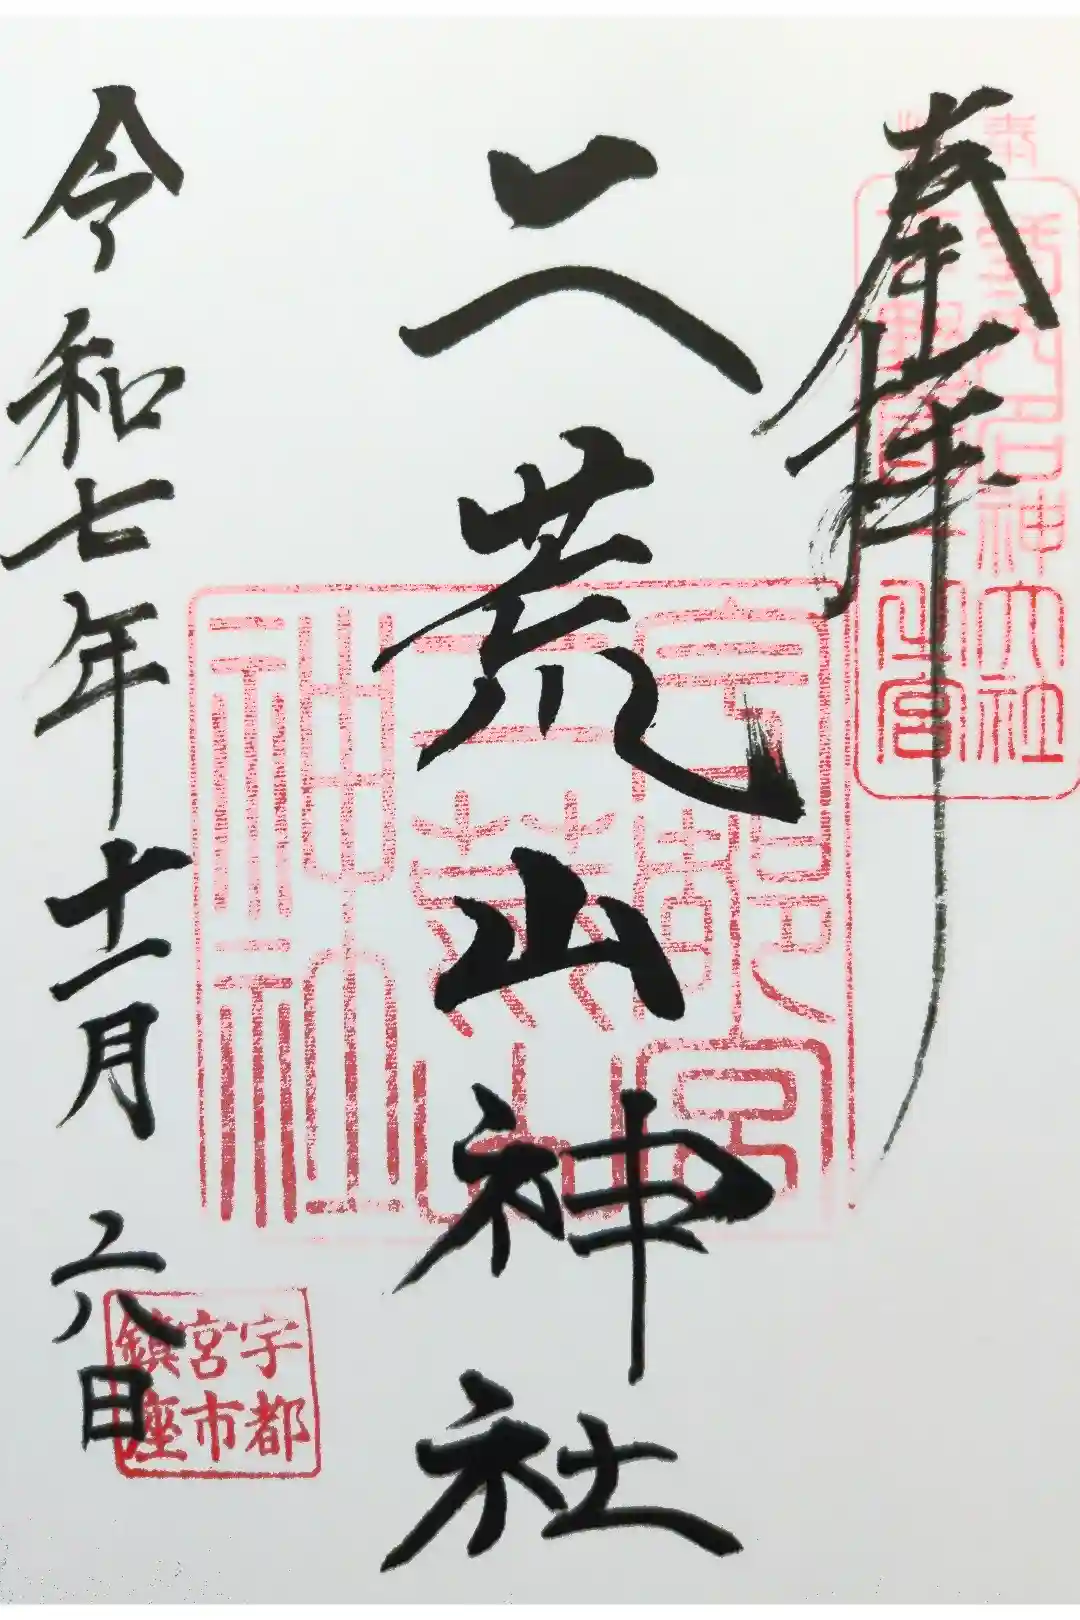 奉拝
名神大社
下野國一之宮
二荒山神社
宇都宮
二荒山
神社
令和七年十一月二八日
宇都
宮市
鎮座